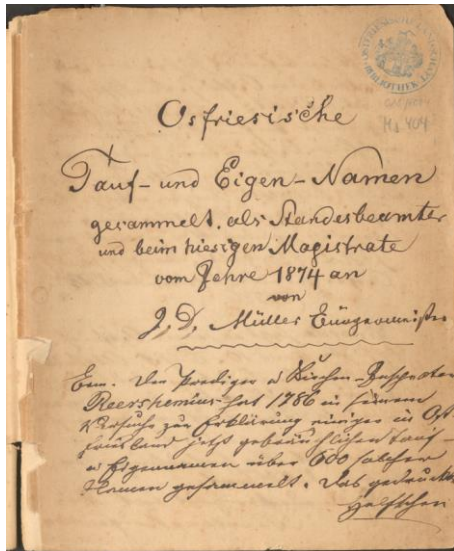 OSTFRIESISCHE LANDSCHAFT
BIBLIOTHEK
Hs 404
Osfriesische
Tauf- und Eigen-Namen
gesammelt, als Standesbeamter
und beim hiesigen Magistrate
vom Jahre 1874 an
von
J. D. Müller Bürgermeister
Der Prediger u Kirchen-
Reershemius hat 1786 in seinem
Versuche zur Erklärung einiger in Ost
friesland jetzt gebräuchlichen Tauf-
u Eigennamen über 600 solcher
Namen gesammelt. Das gedruckte
Heftchen